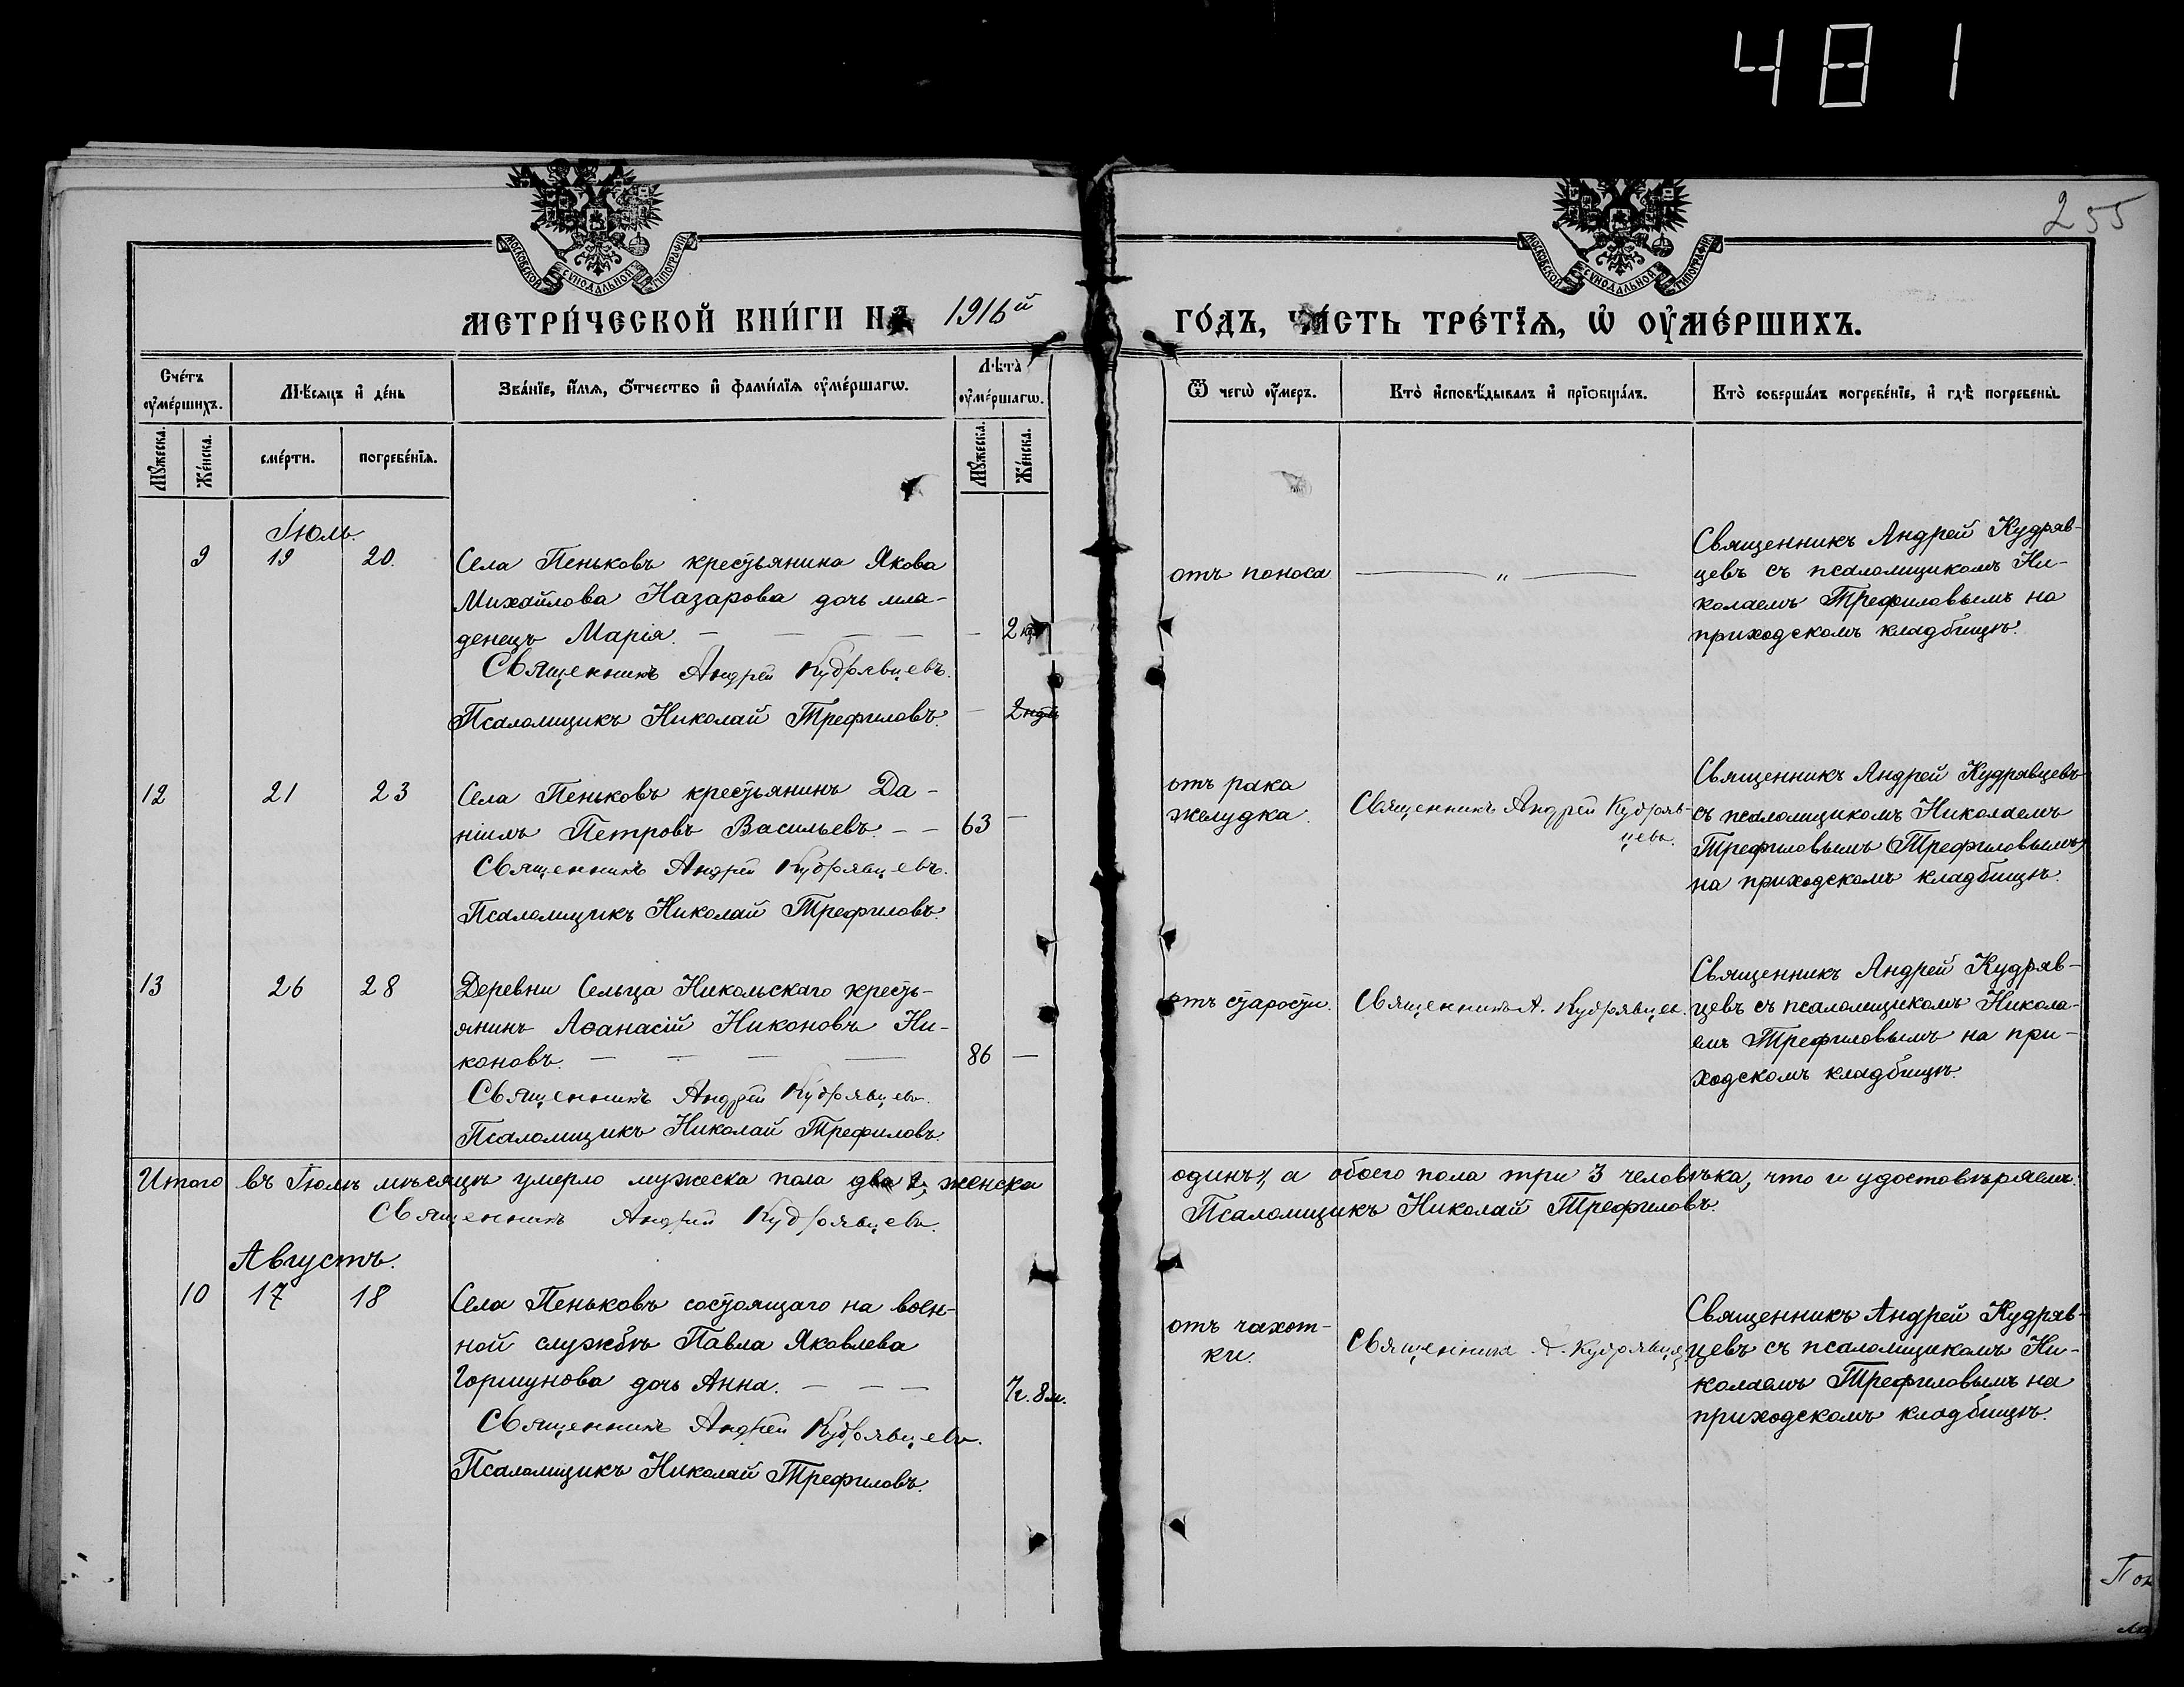 481
255
МОСКОВСКОЙ СѴНОДАЛЬНОЙ ТИПОГРАФІИ
МОСКОВСКОЙ СѴНОДАЛЬНОЙ ТИПОГРАФІИ
МЕТРИ́ЧЕСКОЙ КНИ́ГИ НА 1916й ГО́ДЪ, ЧА́СТЬ ТРЕ́ТЇѦ, Ѡ ОУ҆МЕ́РШИХЪ.
Сче́тъ оу҆ме́ршихъ.
Мѣ́сѧцъ и҆ де́нь
Зва́нїе, и҆́мѧ, ѻ҆́тчество и҆ фами́лїѧ оу҆ме́ршагѡ.
Лѣта̀ оу҆ме́ршагѡ.
Ѿ чегѡ̀ оу҆́меръ.
Кто̀ и҆сповѣ́дывалъ и҆ прїѡбща́лъ.
Кто̀ соверша́лъ погребе́нїе, и҆ гдѣ̀ погребены̀.
Мꙋ́жеска.
Же́нска.
сме́рти.
погребе́нїѧ.
Мꙋ́жеска.
Же́нска.
Іюль.
9 19 20.
Села Пеньковъ крестьянина Якова
Михайлова Назарова дочь мла-
денецъ Марія. — — — — — 2 нд.
Священникъ Андрей Кудрявцевъ.
Псаломщикъ Николай Трефиловъ. — 2 нд.
отъ поноса
— „ —
Священникъ Андрей Кудряв-
цевъ съ псаломщикомъ Ни-
колаемъ Трефиловымъ на
приходскомъ кладбищѣ.
12 21 23
Села Пеньковъ крестьянинъ Да-
ніилъ Петровъ Васильевъ. — — 63 —
Священникъ Андрей Кудрявцевъ.
Псаломщикъ Николай Трефиловъ.
отъ рака
желудка.
Священникъ Андрей Кудряв-
цевъ.
Священникъ Андрей Кудрявцевъ
съ псаломщикомъ Николаемъ
Трефиловымъ (Трефиловымъ)
на приходскомъ кладбищѣ.
13 26 28
Деревни Сельца Никольскаго кресть-
янинъ Аѳанасій Никоновъ Ни-
коновъ. — — — — 86 —
Священникъ Андрей Кудрявцевъ.
Псаломщикъ Николай Трефиловъ.
отъ старости.
Священникъ А. Кудрявцев.
Священникъ Андрей Кудряв-
цевъ съ псаломщикомъ Никола-
емъ Трефиловымъ на при-
ходскомъ кладбищѣ.
Итого въ Іюлѣ мѣсяцѣ умерло мужеска пола два 2, женска одинъ 1, а обоего пола три 3 человѣка, что и удостовѣряемъ.
Священникъ Андрей Кудрявцевъ. Псаломщикъ Николай Трефиловъ.
Августъ.
10 17 18
Села Пеньковъ состоящаго на воен-
ной службѣ Павла Яковлева
Горшунова дочь Анна. — — — 7г. 8м.
Священникъ Андрей Кудрявцевъ.
Псаломщикъ Николай Трефиловъ.
отъ чахот-
ки.
Священникъ А. Кудрявцев
Священникъ Андрей Кудряв-
цевъ съ псаломщикомъ Ни-
колаемъ Трефиловымъ на
приходскомъ кладбищѣ.